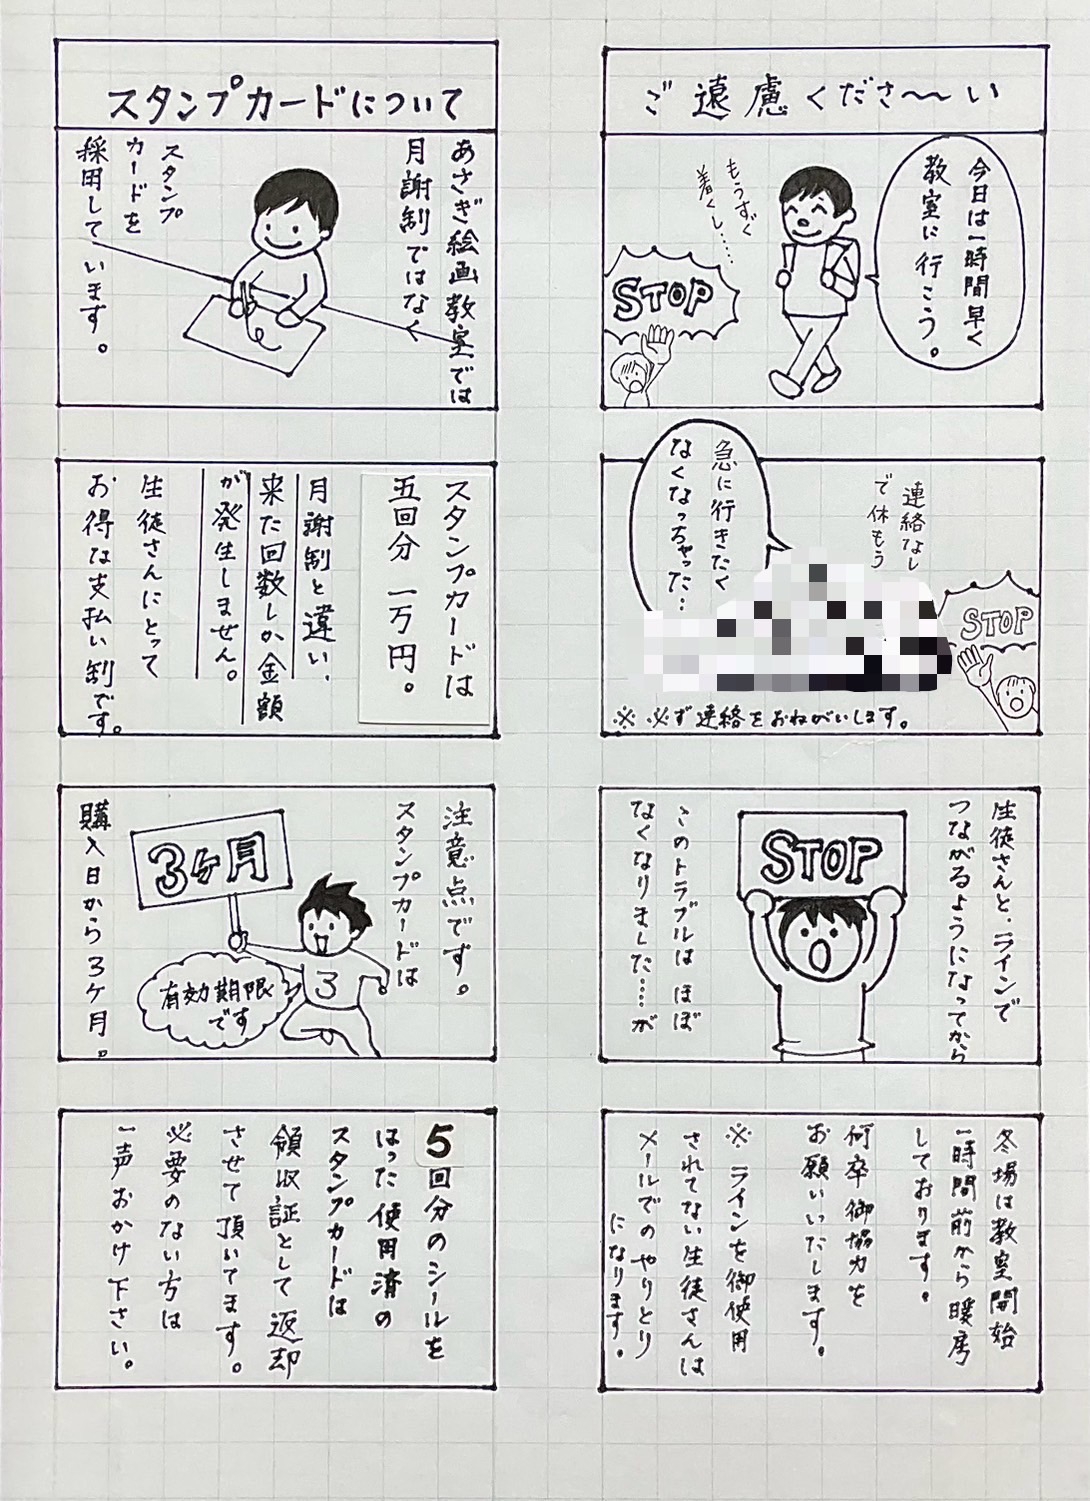 ご遠慮くださ〜〜い
今日は一時間早く
教室に行こう。
もうすぐ
着くし……
STOP
急に行きたく
なくなっちゃった…
連絡なし
で休もう
STOP
※必ず連絡をおねがいします。
生徒さんと、ラインで
つながるようになってから
STOP
このトラブルは ほぼ
なくなりました……が
冬場は教室開始
一時間前から暖房
しております。
何卒御協力を
お願いいたします。
※ ラインを御使用
されてない生徒さんは
メールでのやりとり
になります。
スタンプカードについて
あさぎ絵画教室では
月謝制ではなく
スタンプ
カードを
採用して います。
スタンプカードは
五回分 一万円。
月謝制と違い、
来た回数しか金額
が発生しません。
生徒さんにとって
お得な支払い制です。
注意点です。
スタンプカードは
3ヶ月
3
有効期限
です
購入日から3ヶ月。
5回分のシールを
はった使用済の
スタンプカードは
領収証として返却
させて頂いてます。
必要のない方は
一声おかけ下さい。